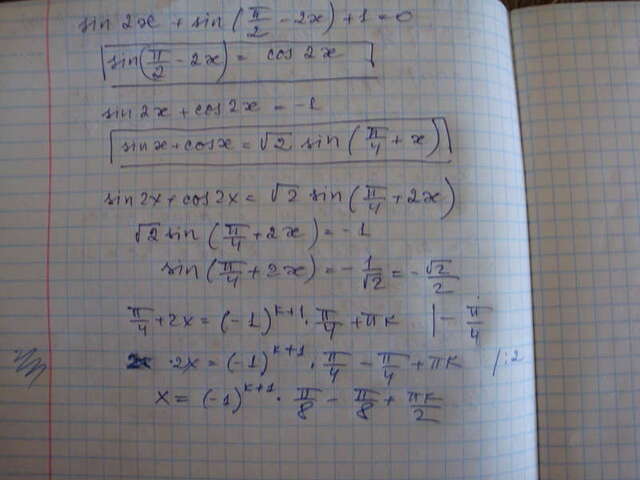 sin 2x + sin (π/2 − 2x) + 1 = 0
sin(π/2 − 2x) = cos 2x
sin 2x + cos 2x = −1
sin x + cos x = √2 sin (π/4 + x)
sin 2x + cos 2x = √2 sin (π/4 + 2x)
√2 sin (π/4 + 2x) = −1
sin (π/4 + 2x) = − 1/√2 = − √2/2
π/4 + 2x = (−1)^{k+1} · π/4 + πk | − π/4
2x = (−1)^{k+1} · π/4 − π/4 + πk | :2
x = (−1)^{k+1} · π/8 − π/8 + πk/2